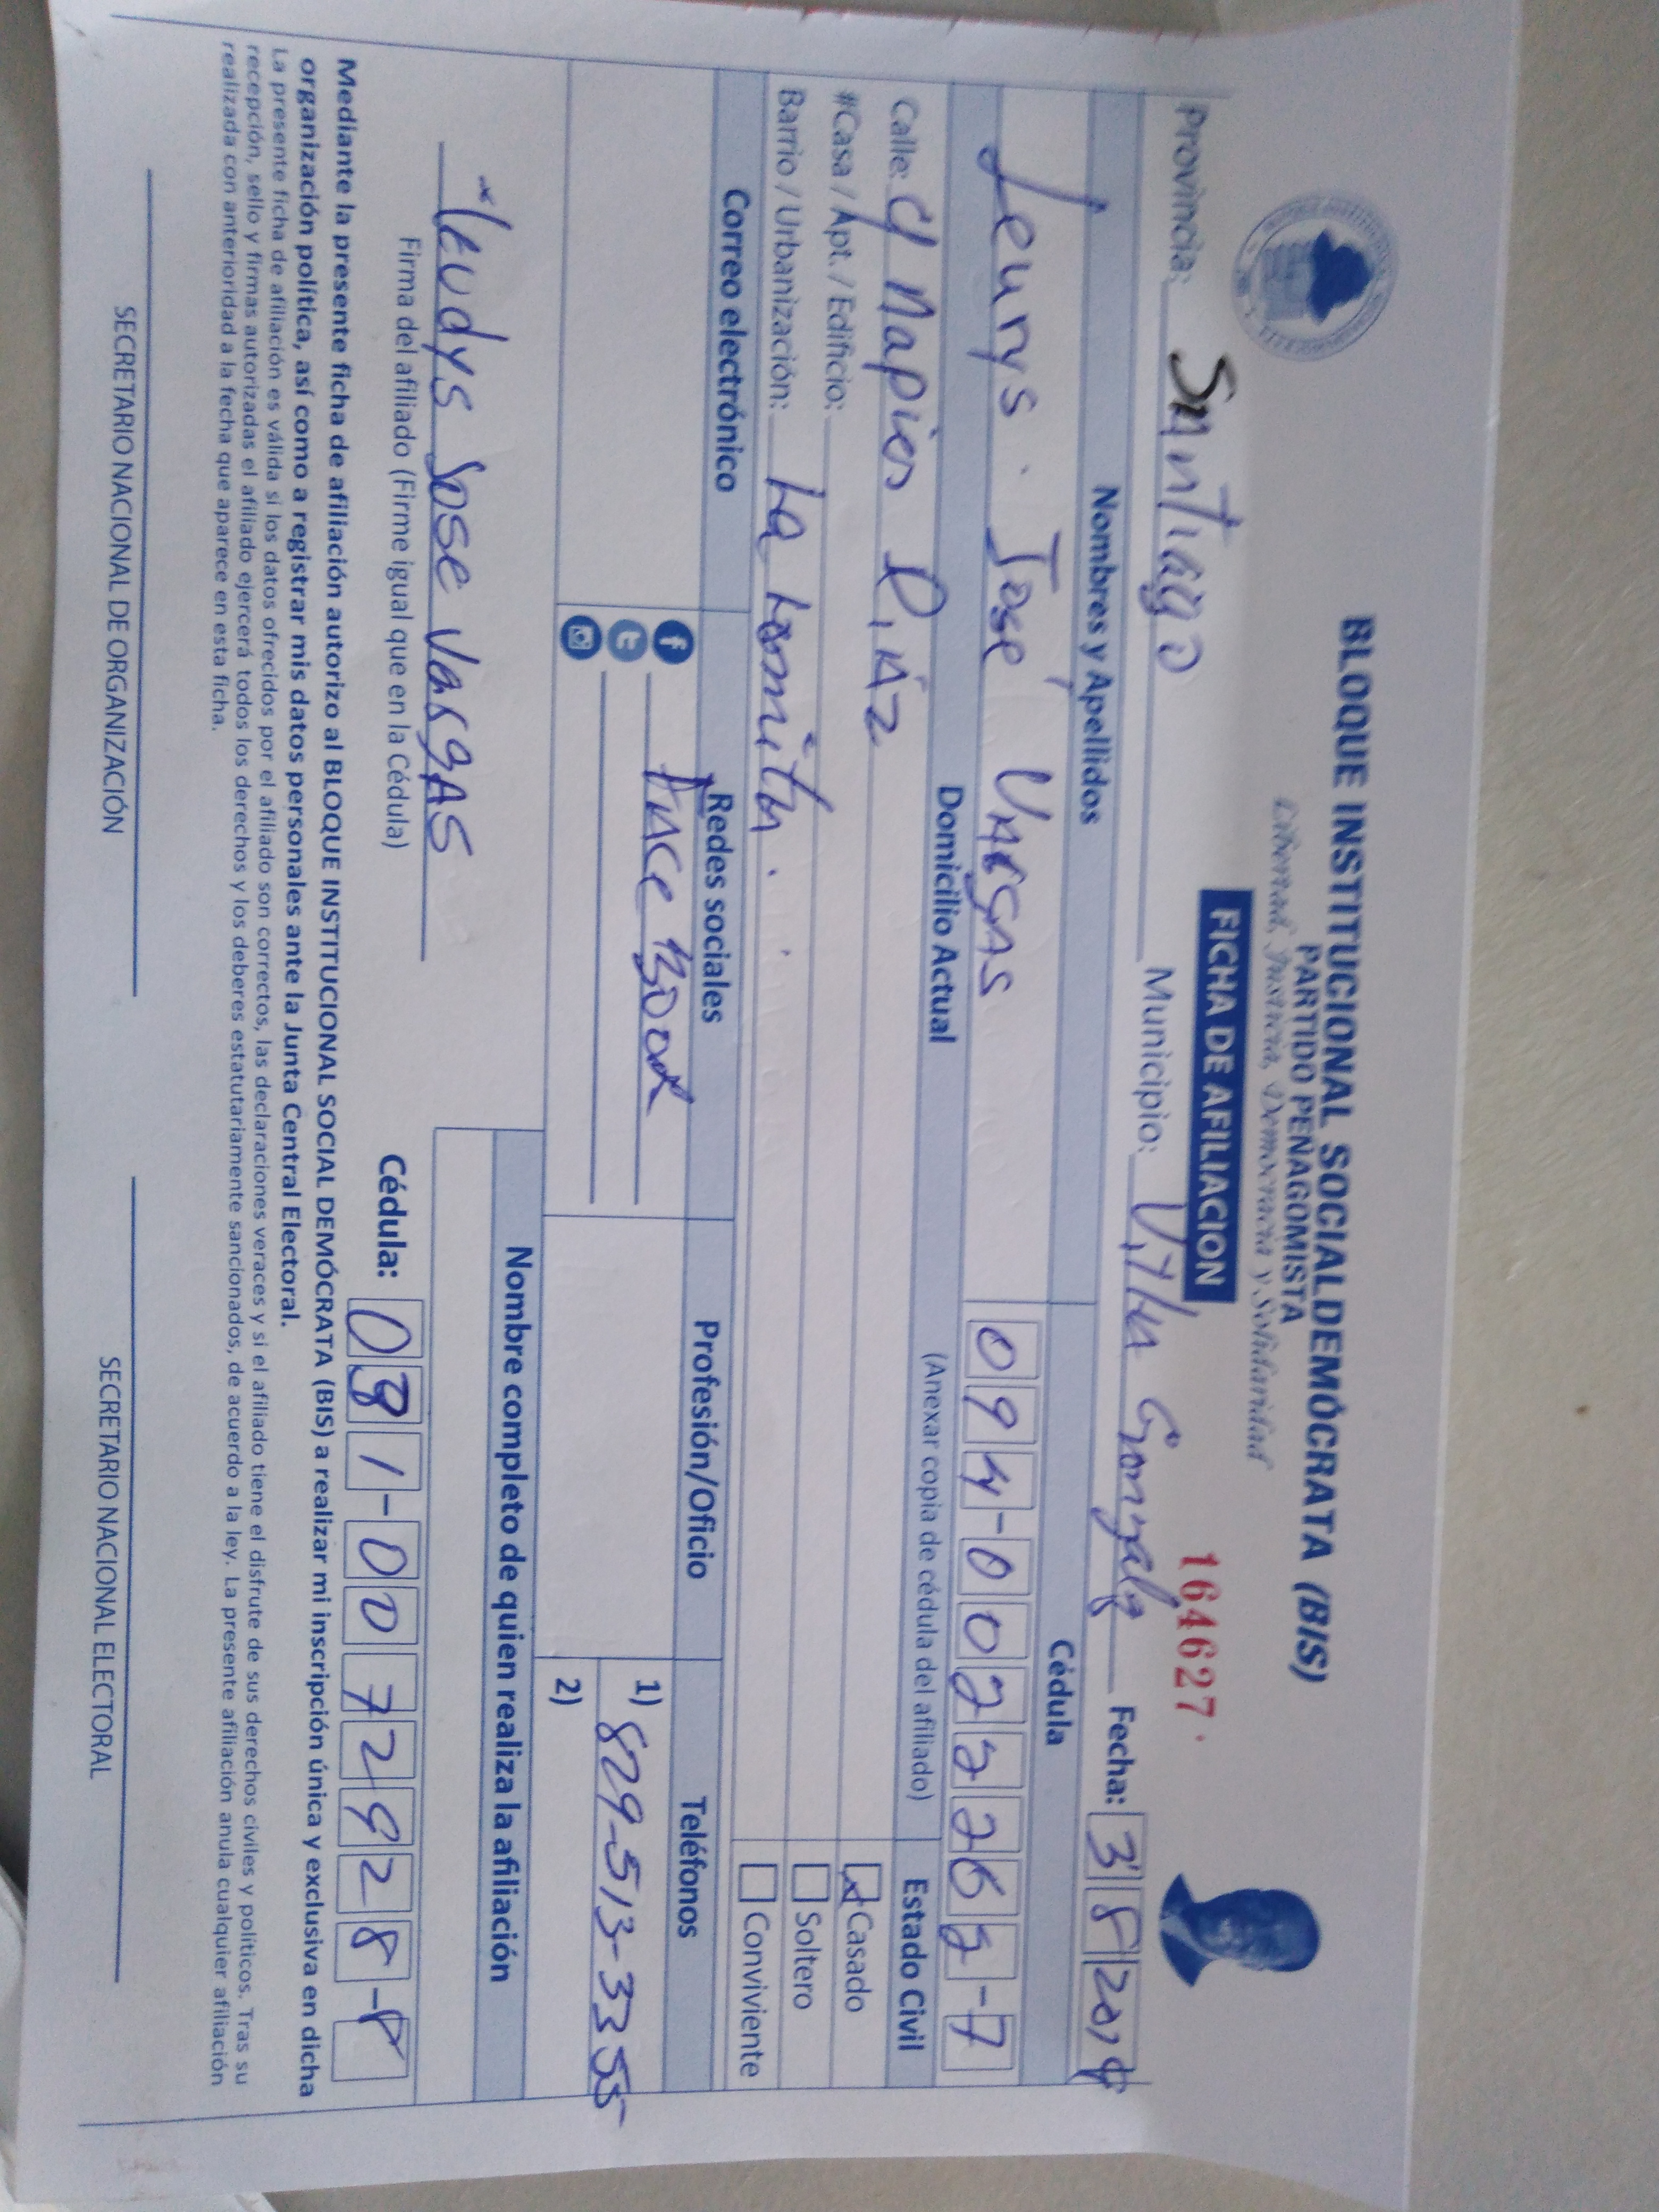 BLOQUE INSTITUCIONAL SOCIALDEMÓCRATA (BIS)
PARTIDO PEÑAGOMISTA
Libertad, Justicia, Democracia y Solidaridad
FICHA DE AFILIACION
164627
Provincia: Santiago Municipio: Villa Gonzalez Fecha: 3 8 2019
Nombres y Apellidos Cédula
Leurys José Vargas 094-0022265-7
Domicilio Actual (Anexar copia de cédula del afiliado) Estado Civil
Calle: Díaz Casado
#Casa / Apt. / Edificio: Soltero
Barrio / Urbanización: La Lomita. Conviviente
Correo electrónico Redes sociales Profesión/Oficio Teléfonos
Face Book 1) 829-513-3355
2)
Nombre completo de quien realiza la afiliación
José Vargas
Firma del afiliado (Firme igual que en la Cédula)
Cédula:
Mediante la presente ficha de afiliación autorizo al BLOQUE INSTITUCIONAL SOCIAL DEMÓCRATA (BIS) a realizar mi inscripción única y exclusiva en dicha
organización política, así como a registrar mis datos personales ante la Junta Central Electoral.
La presente ficha de afiliación es válida si los datos ofrecidos por el afiliado son correctos, las declaraciones veraces y si el afiliado tiene el disfrute de sus derechos civiles y políticos. Tras su
recepción, sello y firmas autorizadas el afiliado ejercerá todos los derechos y los deberes estatutariamente sancionados, de acuerdo a la ley. La presente afiliación anula cualquier afiliación
realizada con anterioridad a la fecha que aparece en esta ficha.
SECRETARIO NACIONAL DE ORGANIZACIÓN SECRETARIO NACIONAL ELECTORAL